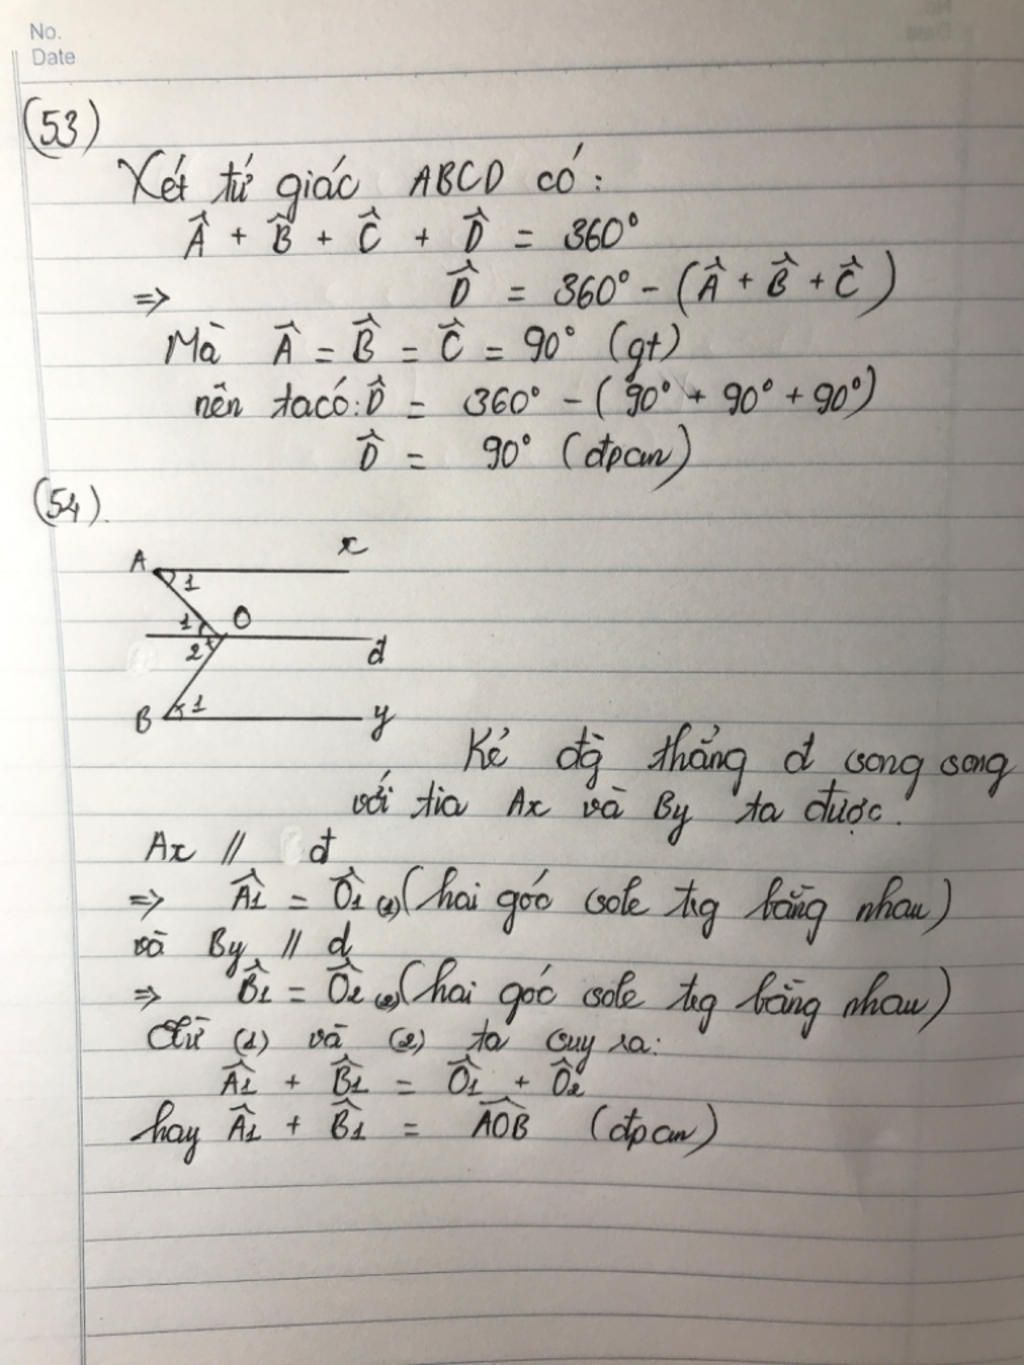 No.
Date
(53)
Xét tứ giác ABCD có:
Â + B̂ + Ĉ + D̂ = 360°
=> D̂ = 360° - (Â + B̂ + Ĉ)
Mà Â = B̂ = Ĉ = 90° (gt)
nên ta có: D̂ = 360° - (90° + 90° + 90°)
D̂ = 90° (đpcm)
(54).
A x
1
1 O
2 đ
B 1 y
Kẻ đg̀ thẳng đ song song
với tia Ax và By ta được.
Ax // đ
=> Â1 = Ô1 (1) (hai góc sole trg bằng nhau)
và By // d
=> B̂1 = Ô2 (2) (hai góc sole trg bằng nhau)
Từ (1) và (2) ta suy ra:
Â1 + B̂1 = Ô1 + Ô2
hay Â1 + B̂1 = AÔB (đpcm)